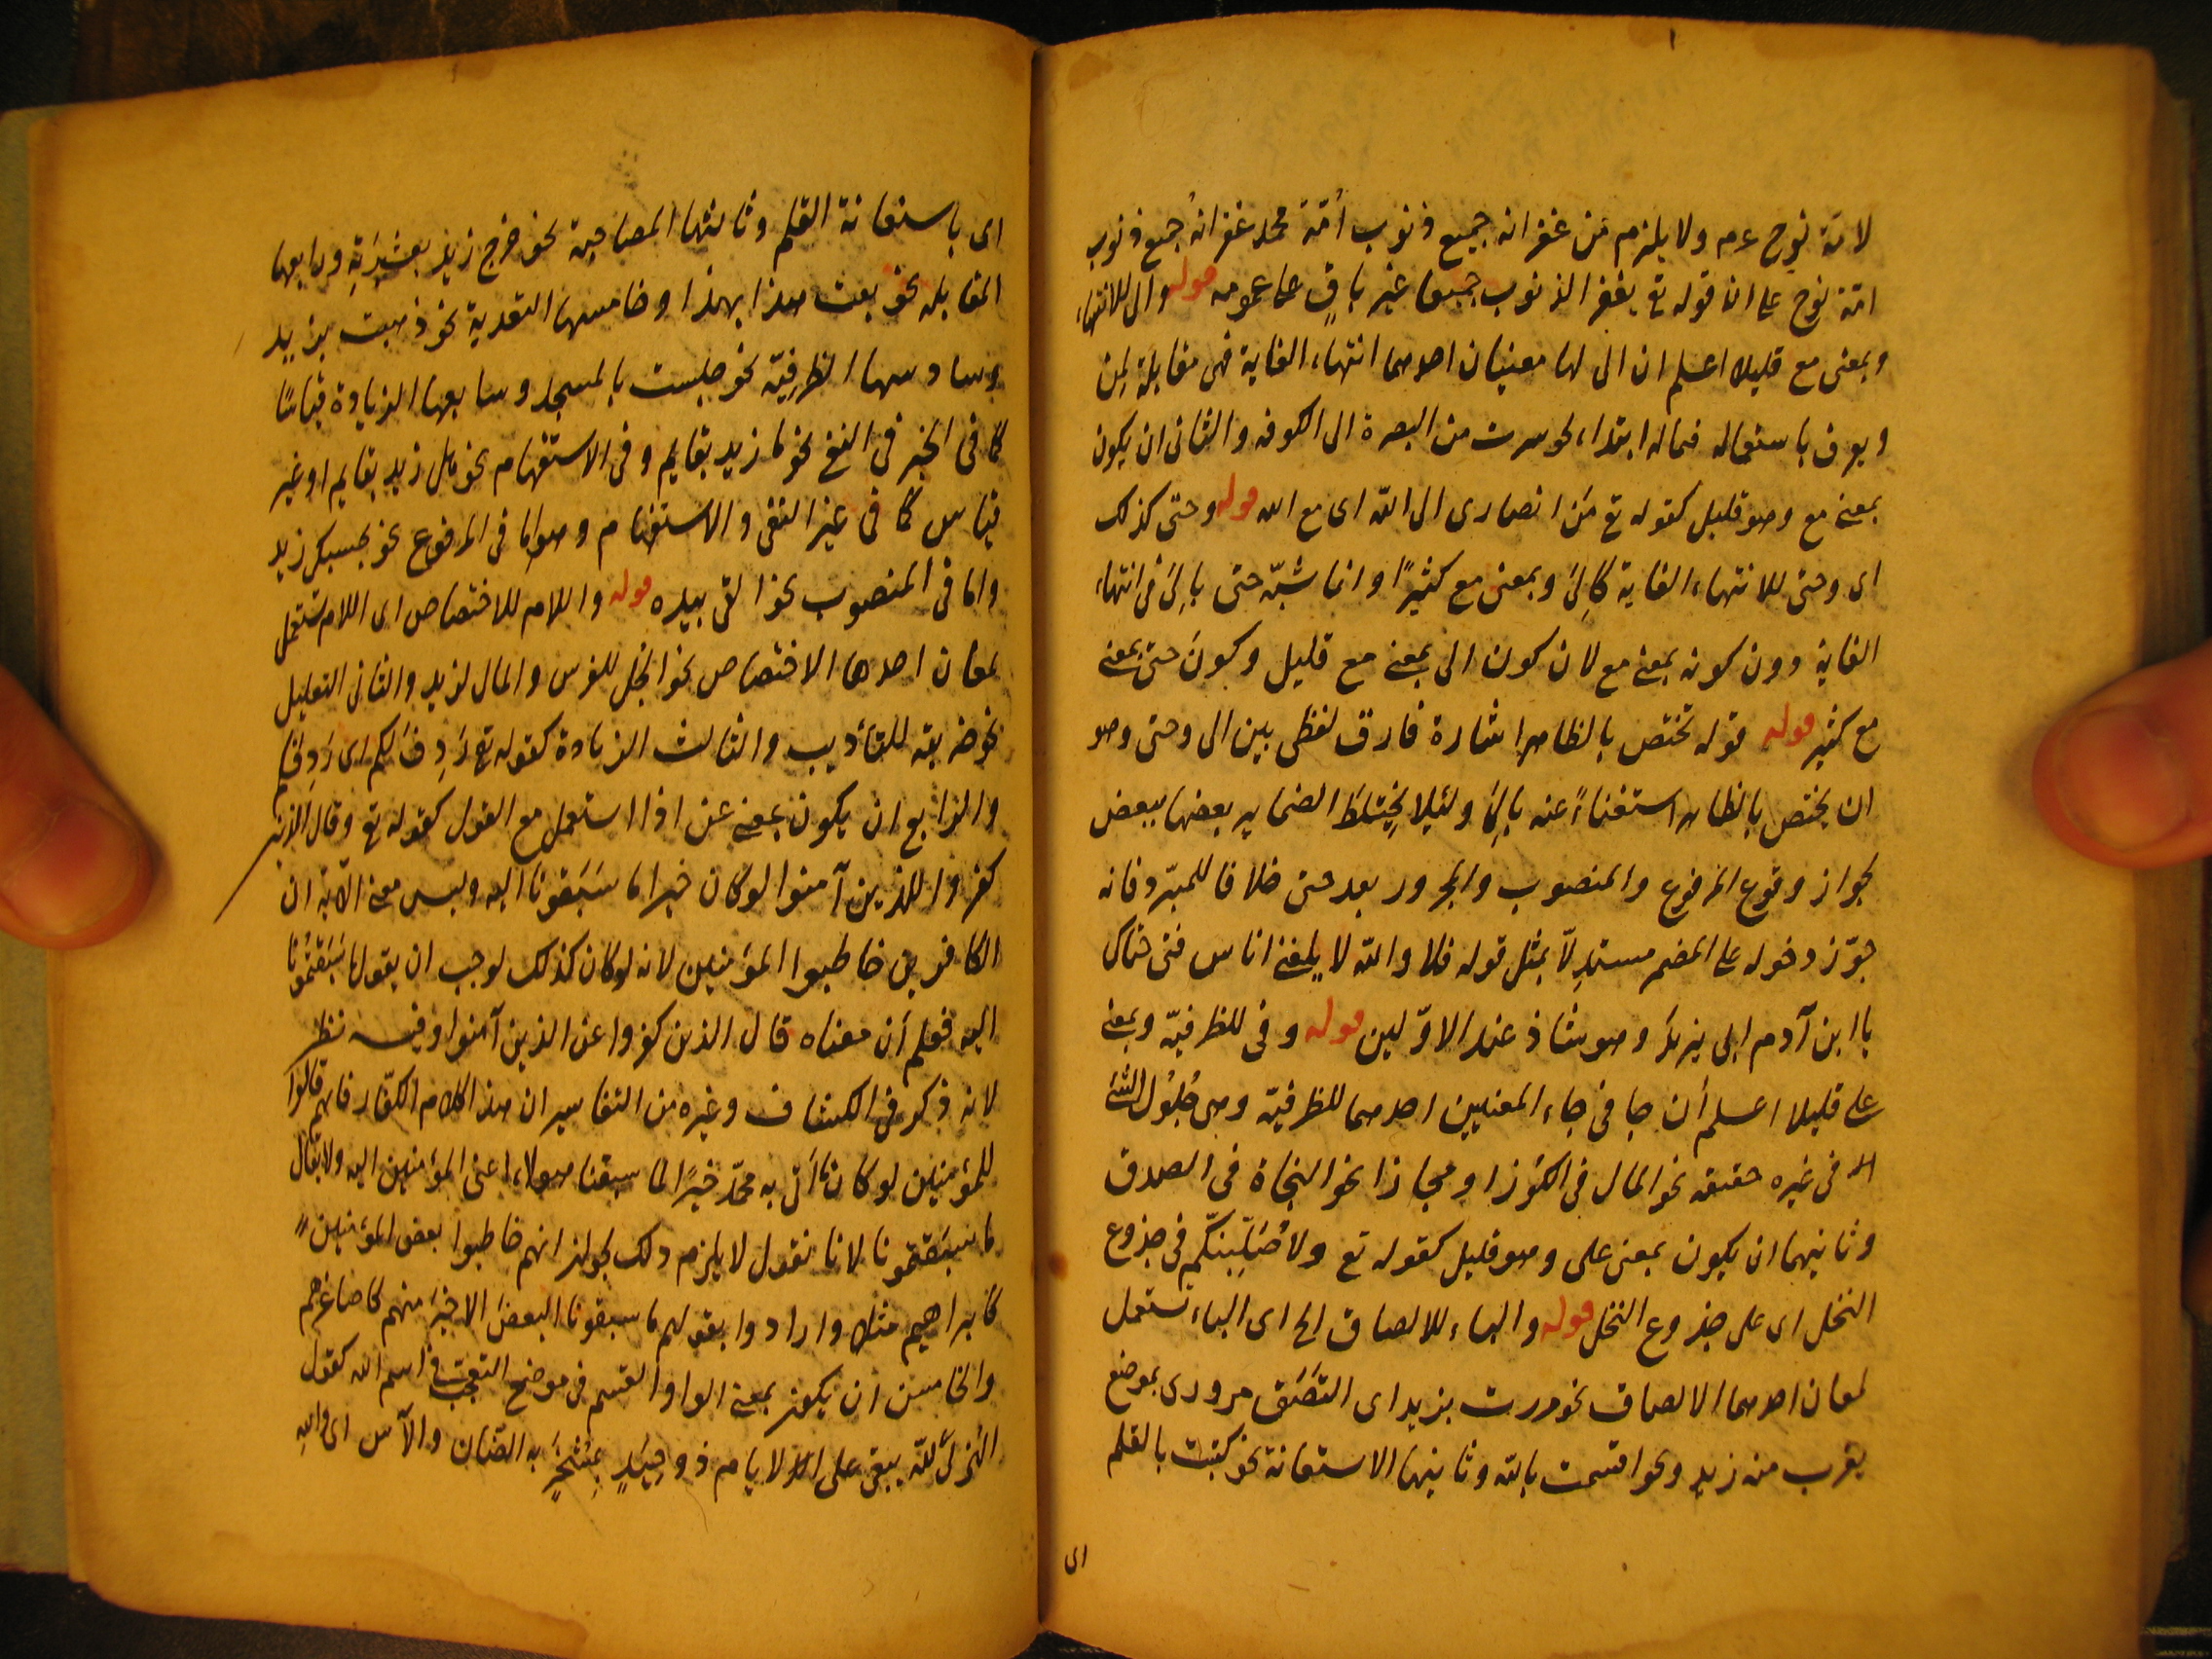 لامة نوح عم ولا يلزم من غفرانه جميع ذنوب أمّة محمد غفرانُه جميع ذنوب
امّة نوح على ان قوله تع يغفر الذنوب جميعا غير باقٍ على عمومه قوله والى للانتهاء
وبمعنى مع قليلا اعلم ان الى لها معنيان احدهما انتهاء الغاية فهى مقابلة لِمن
ويعرف باستعماله فيما له ابتداء نحو سرت من البصرة الى الكوفة والثانى ان يكون
بمعنى مع وهو قليل كقوله تع مَن انصارى الى اللّه اى مع الله قوله وحتى كذلك
اى وحتى للانتهاء الغاية كَاِلىَ وبمعنى مع كثيرًا وانما شبّه حتى باِلىَ فى انتهاء
الغاية دون كونه بمعنى مع لان كون الى بمعنى مع قليل وكونَ حتى بمعنى
مع كثير قوله قوله تختص بالظاهر اشارة فارق لفظى بين الى وحتى وهو
ان يختص بالظاهر استغناءً عنه باِلىَ ولئيلا يَختلطَ الضماير بعضها ببعض
لجواز وقوع المرفوع والمنصوب والمجرور بعد حتى خلافا للمبرّد فانه
جوّز دخوله على المضمر مستدلّا بمثل قوله فلا واللّه لا يلفى اناس فتى حتاك
يا ابن آدم ابى يزيد وهو شاذ عند الاوّلين قوله وفى للظرفيّة وبمعنى
على قليلا اعلم أن جا فى جاء المعنيين احدهما للظرفيّة وهى حُلُولُ الشئ
فى غيره حقيقة نحو المال فى الكوز او مجازا نحو النجاة فى الصدق
وثانيهما ان يكون بمعنى على وهو قليل كقوله تع ولاُصَلِّبنكّم فى جذوع
النخل اى على جذوع النخل قوله والباء للالصاق الخ اى الباء تستعمل
لمعان احدهما الالصاق نحو مررت بزيد اى التَصَق مرورى بموضع
يقرب منه زيد ونحو اقسمت باللّه وثانيها الاستعانة نحو كتبت بالقلم
اى
اى باستعانة القلم وثالثها المصاحبة نحو خرج زيد بعشيرَتِهِ ورابعها
المقابلة نحو بعت هذا بهذا وخامسها التعدية نحو ذهبت بزيد
وسادسها الظرفيّة نحو جلست بالمسجد وسابعها الزيادة قياسًا
كما فى الخبر فى النفى نحو ما زيد بقايم وفى الاستفهام نحو هل زيد بقايم او غير
قياس كما فى غير النفى والاستفهام وهو اما فى المرفوع نحو بحسبك زيد
واما فى المنصوب نحو القى بيده قوله واللام للاختصاص اى اللام تستعمل
لمعان احدها الاختصاص نحو الجُل للفرس والمال لزيد والثانى التعليل
نحو ضربته للتأديب والثالث الزيادة كقوله تع رَدِفَ لكم اى رَدِفكم
والرابع ان يكون بمعنى عن اذا استعمل مع القول كقوله تع وقال الذين
كفروا للذين آمنوا لو كان خيرا ما سَبَقونَا اليه وليس معنى الآية ان
الكافرين خاطبوا المؤمنين لانه لو كان كذلك لوجب ان يقول ما سَبَقتُمُونا
اليه فعلم أن معناه قال الذين كفروا عن الذين آمنوا وفيه نظر
لانه ذكر فى الكشاف وغيره من التفاسير ان هذا كلام الكفّار فانهم قالوا
للمؤمنين لو كان ما اتى به محمّد خيرًا لما سبقنا هولاء اعنى المؤمنين اليه ولا يقال
ما سبقتمونا لانا نقول لا يلزم ذلك لجواز انهم خاطبوا بعض المؤمنين
كابراهيم مثلا وارادوا بقولهم ما سبقونا البعضَ الاخيَر منهم كاصاغرهم
والخامس ان يكون بمعنى الواو القسم فى موضع التعجّب فى اسم الله كقول
الهُزلىّ للّه يبقى على الايام ذو حِيَدٍ بِمُشْمَخِرٍّ به الظيّان والآس اى واللهِ